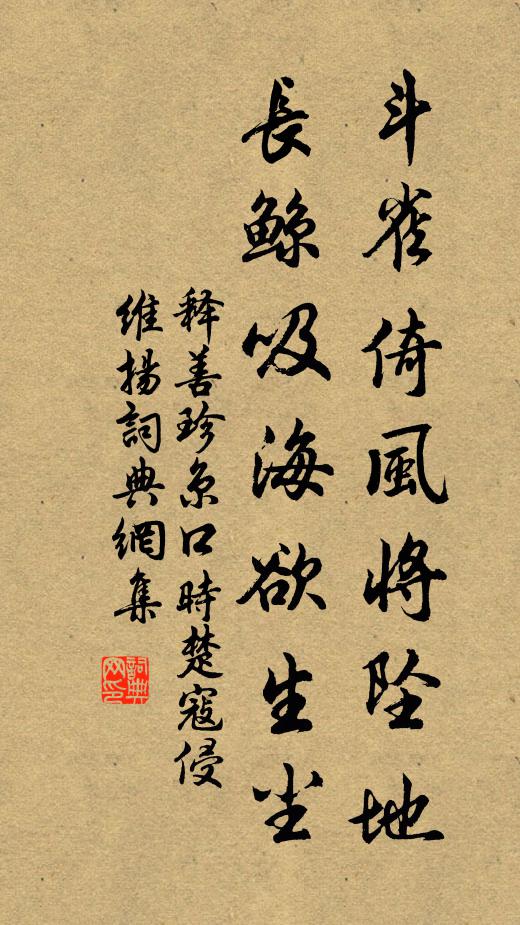 斗雀倚風將坠地
長鲸吸海欲生尘
释善珍京口時楚寇侵
維揚詞典網集
詞典
网印